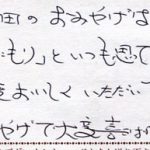 田のおみやげは
もり」といつも思て
おいしくいただい
やげで大変喜ば